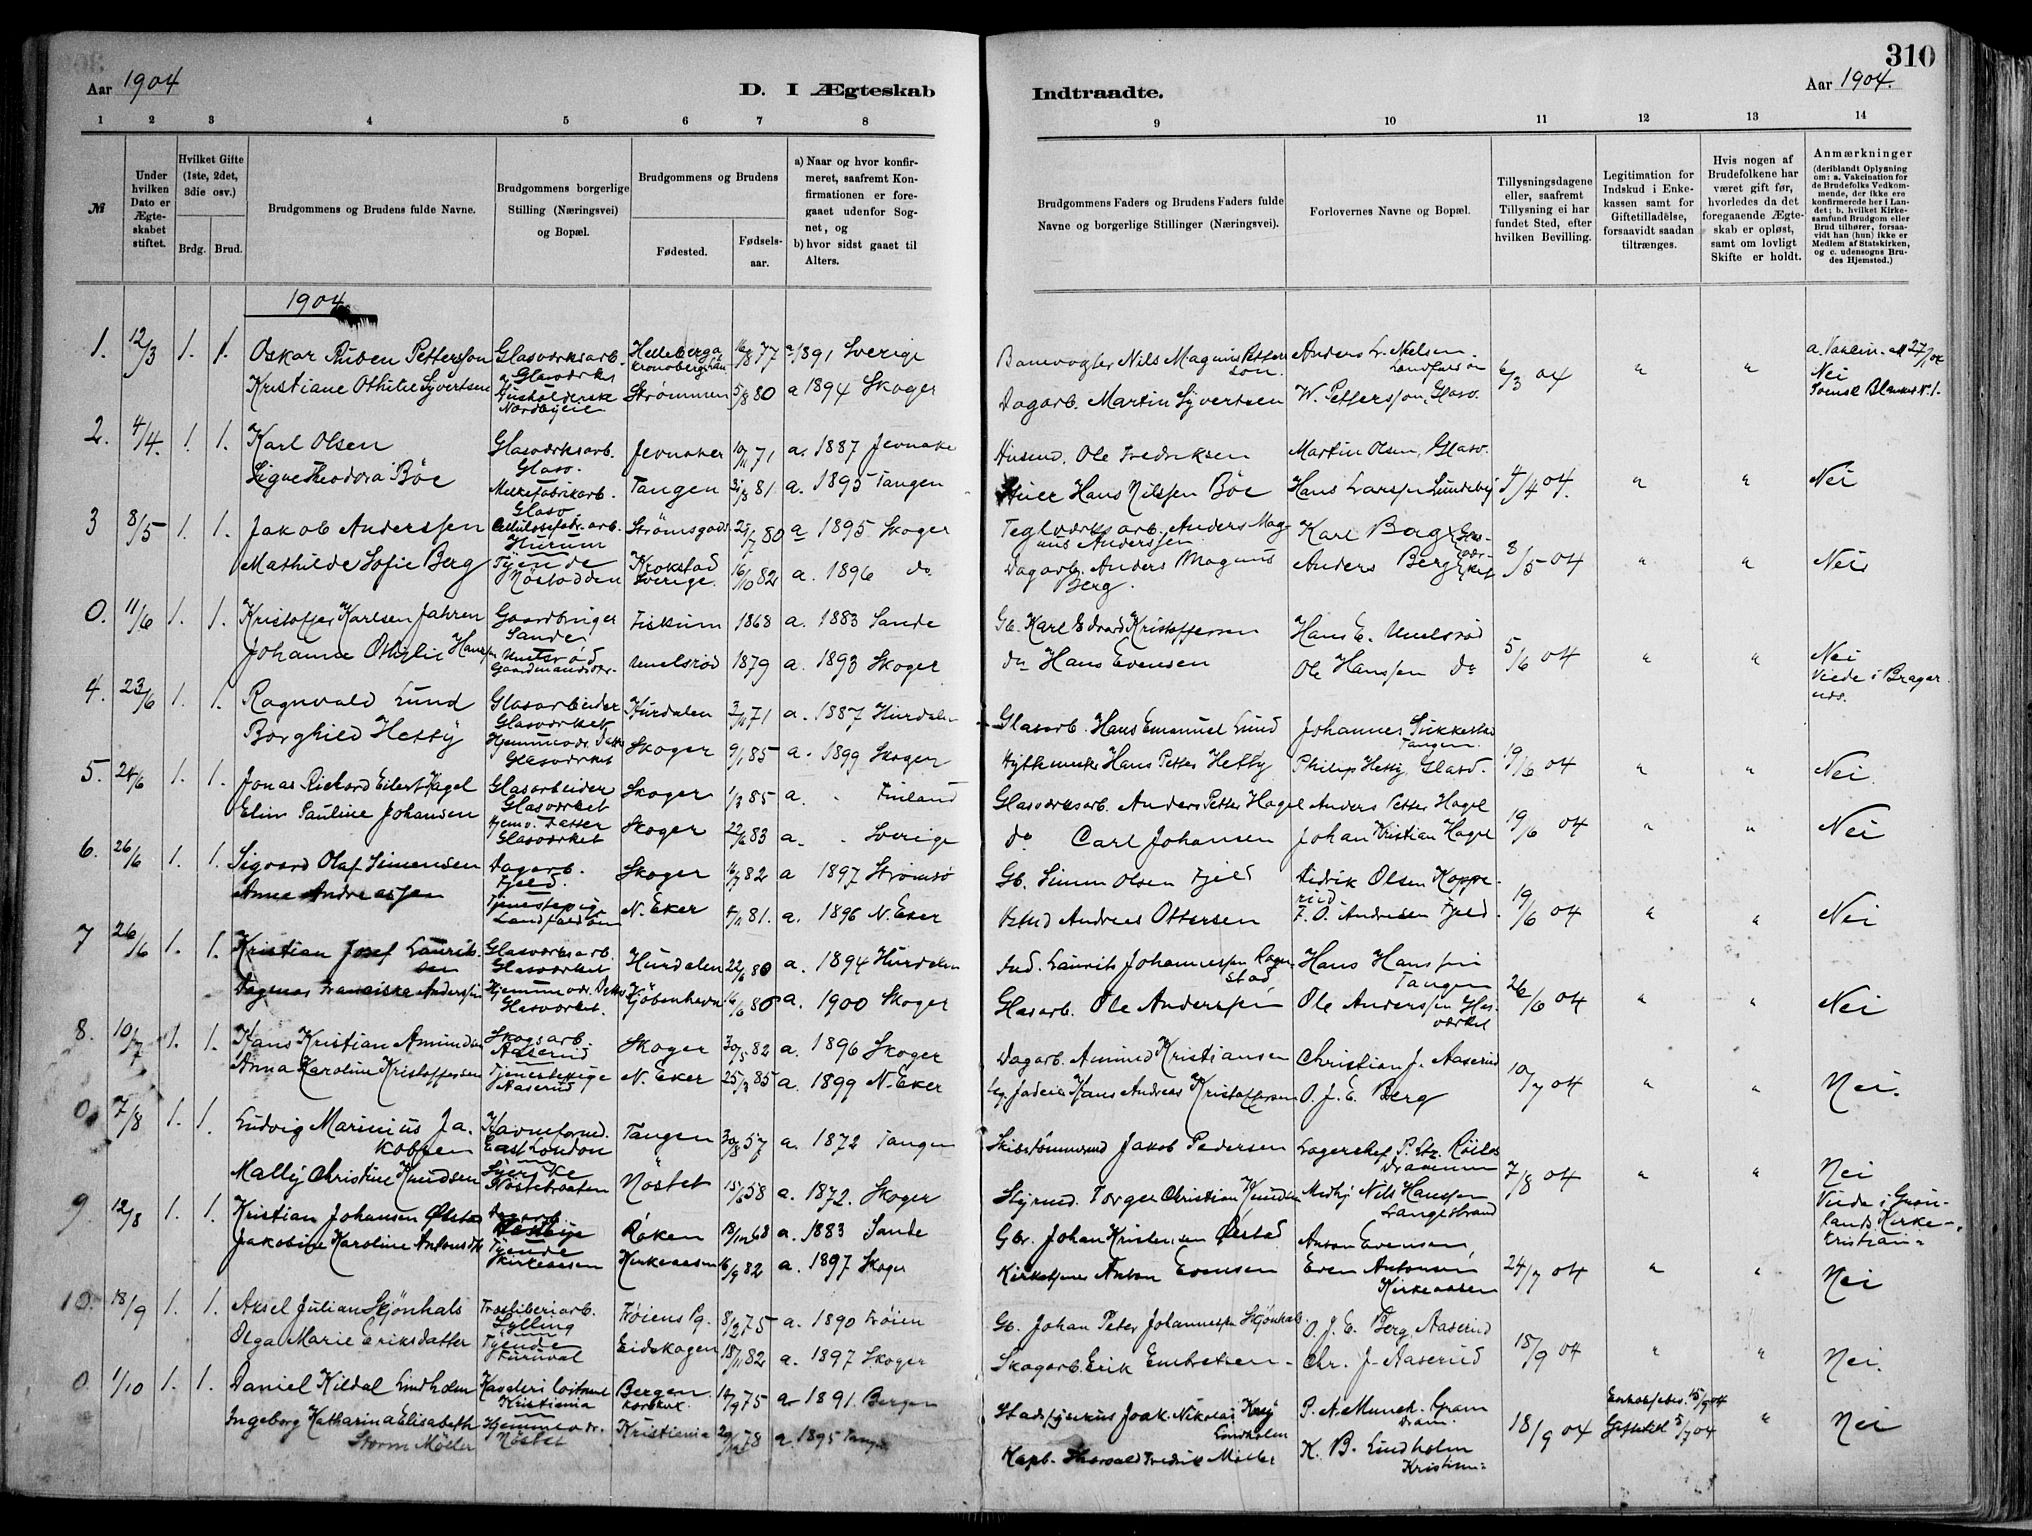 310
Aar 1904
D. I Ægteskab
Indtraadte.
Aar 1904.
1 2 3 4 5 6 7 8
9 10 11 12 13 14
№
Under hvilken Dato er Ægteskabet stiftet.
Hvilket Gifte (1ste, 2det, 3die osv.)
Brdg. Brud.
Brudgommens og Brudens fulde Navne.
Brudgommens borgerlige Stilling (Næringsvei) og Bopæl.
Brudgommens og Brudens
Fødested.
Fødselsaar.
a) Naar og hvor konfirmeret, saafremt Konfirmationen er foregaaet udenfor Sognet, og
b) hvor sidst gaaet til Alters.
Brudgommens Faders og Brudens Faders fulde Navne og borgerlige Stillinger (Næringsvei).
Forlovernes Navne og Bopæl.
Tillysningsdagene eller, saafremt Tillysning ei har fundet Sted, efter hvilken Bevilling.
Legitimation for Indskud i Enkekassen samt for Giftetilladelse, forsaavidt saadan tiltrænges.
Hvis nogen af Brudefolkene har været gift før, hvorledes da det foregaaende Ægteskab er opløst, samt om lovligt Skifte er holdt.
Anmærkninger
(deriblandt Oplysning om: a. Vakcination for de Brudefolks Vedkommende, der ikke ere konfirmerede her i Landet; b. hvilket Kirkesamfund Brudgom eller Brud tilhører, forsaavidt han (hun) ikke er Medlem af Statskirken, og c. udensogns Brudes Hjemsted.)
1904
1. 12/3 1. 1. Oskar Ruben Pettersson Glasværksarb. Helleberga 16/8 77 a 1891 Sverige
Banevogter Nils Magnus Pettersson Anders L. Nielsen Landfaldøen 6/3 04 " " Nei
Kristiane Othilie Syvertsen Strømmen 5/8 80 a 1894 Skoger
Dagarb. Martin Syvertsen W. Pettersson, Glasv.
2. 4/4. 1. 1. Karl Olsen Glasværksarb. Glasv. Jevnaker 10/11 71 a. 1887 Jevnake
Husmd. Ole Fredriksen Martin Olsen, Glasv.
Signe Theodora Böe Tangen 31/3 81 a. 1895 Tangen
Hans Nilssen Böe Hans Larssen Lundeby 4/4 04. " " Nei
3 8/5 1. 1. Jakob Anderssen Cellulosefabr.arb. Hurum Strømsgods 25/7 80 a 1895 Skoger
Teglværksarb. Anders Magnus Anderssen Karl Berg
Mathilde Sofie Berg Tjende Nöstodden Krokstad Sverige 16/10 82 a. 1896 do
Dagarb. Anders Magnus Berg Anders Berg 8/5 04 " " Nei
0. 11/6 1. 1. Kristoffer Karlsen Jahren Gaardbruger Sande Fiskum 1868 a. 1883 Sande
Gb. Karl Edvard Kristoffersen Hans E. Unelsrød
Johanne Othilie Hanssen Unelsrød Gaardmandsdtr. Unelsrød 1879 a. 1893 Skoger
do Hans Evensen Ole Hanssen do 5/6 04 " " Nei
Viede i Bragernes.
4. 23/6 1. 1. Ragnvald Lund Glasarbeider Glasværket Hurdalen 3/11 71 a. 1887 Hurdalen
Glasarb. Hans Emanuel Lund Johannes Sukkestad Tangen
Borghild Hetty Hjemmev. Datter Glasværket Skoger 9/1 85 a. 1899 Skoger
Hyttemester Hans Petter Hetty Philip Hetty Glasv. 19/6 04 " " Nei.
5. 24/6 1. 1. Jonas Rickard Eilert Hagel Glasarbeider Glasværket Skoger 1/3 85 a. " Finland
Glasværksarb. Anders Petter Hagel Anders Petter Hagel
Elin Pauline Johansen Hjemv. Datter Glasværket Skoger 22/6 83 a. " Sverige
do Carl Johansen Johan Kristian Hagel 19/6 04 " " Nei
6. 26/6 1. 1. Sigvard Olaf Simensen Dagarb. Fjeld. Skoger 16/7 82 a 1897 Strømsø
Gb. Simen Olsen Fjeld Didrik Olsen Kopperud
Anne Andreassen Tjenestepige Landfaldöen N. Eker 4/11 81. a. 1896 N. Eker
Andreas Ottersen F. O. Andresen Fjeld. 19/6 04 " " Nei
7 26/6 1. 1. Kristian Josef Lauritssen Glasværksarb. Glasværket Hurdalen 22/6 80 a. 1894 Hurdalen
Ind. Laurits Johannessen Hans Hanssen Tangen
Dagmar Franciska Anderssen Hjemmev. Datter Glasværket. Kjöbenhavn 16/6 86 a. 1900 Skoger
Glasarb. Ole Anderssen Ole Anderssen Glasværket 26/6 04 " " Nei
8. 10/7 1. 1. Hans Kristian Amundsen Skogsarb. Aaserud Skoger 30/5 82 a. 1896 Skoger
Dagarb. Amund Kristiansen Christian J. Aaserud
Anna Karoline Kristoffersen Tjenestepige Aaserud N. Eker 25/3 85 a. 1899 N. Eker
Hans Andreas Kristoffersen O. J. E. Berg 10/7 04 " " Nei.
0. 7/8 1. 1. Ludvig Marinius Jakobsen Havnefoged. East London Tangen 30/8 57 a. 1872 Tangen
Skibstømmermd Jakob Pedersen Lagerchef P. Drammen
Mally Christine Knudsen Syerske Nöstet 15/6 58 a. 1872. Skoger
Styrmd. Torger Christian Knudsen Nils Hanssen Langestrand 7/8 04 " " Nei
Viede i Grønlands Kirke Kristian=
9. 12/8 1. 1. Kristian Johansen Ørstad Dagarb. Røken 18/12 68 a. 1883 Sande
Gbr. Johan Kristensen Ørstad Anton Evensen,
Jakobine Karoline Antonsdtr. Tjende Kirkeaasen Kirkeaasen 16/9 82 a. 1897 Skoger
Kirketjener Anton Evensen Even Antonsen Kirkeaasen 24/7 04 " " Nei
10. 18/9 1. 1. Aksel Julian Skjönhals Træsliberiarb. Sylling Frøiens Pg. 8/2 75 a. 1890 Frøien
Gb. Johan Peter Johannessen Skjönhals O. J. E. Berg, Aaserud
Olga Marie Eriksdatter Tjende Eidskogen 18/11 82 a. 1897 Skoger
Skogarb. Erik Embretsen Chr. J. Aaserud 18/9 04 " " Nei.
0. 1/10 1. 1. Daniel Kildal Lindholm Kristiania Bergen 14/9 75 a 1891 Bergen
Joak. Nikolai Krey Lindholm P. A. Munch. Gram Dram.
Ingeborg Katharina Elisabeth Storm Möller Hjemmev. Nöstet Kristiania 29/12 78 a. 1895 Tangen
Kapt. Thorvald Fredrik Møller K. B. Lindholm Kristian= 18/9 04 Giftetill 5/7 04 " Nei